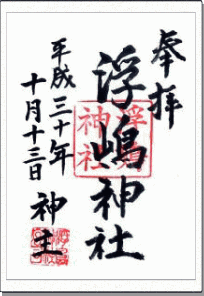 奉拝
浮嶋神社
平成三十年
十月十三日
神主